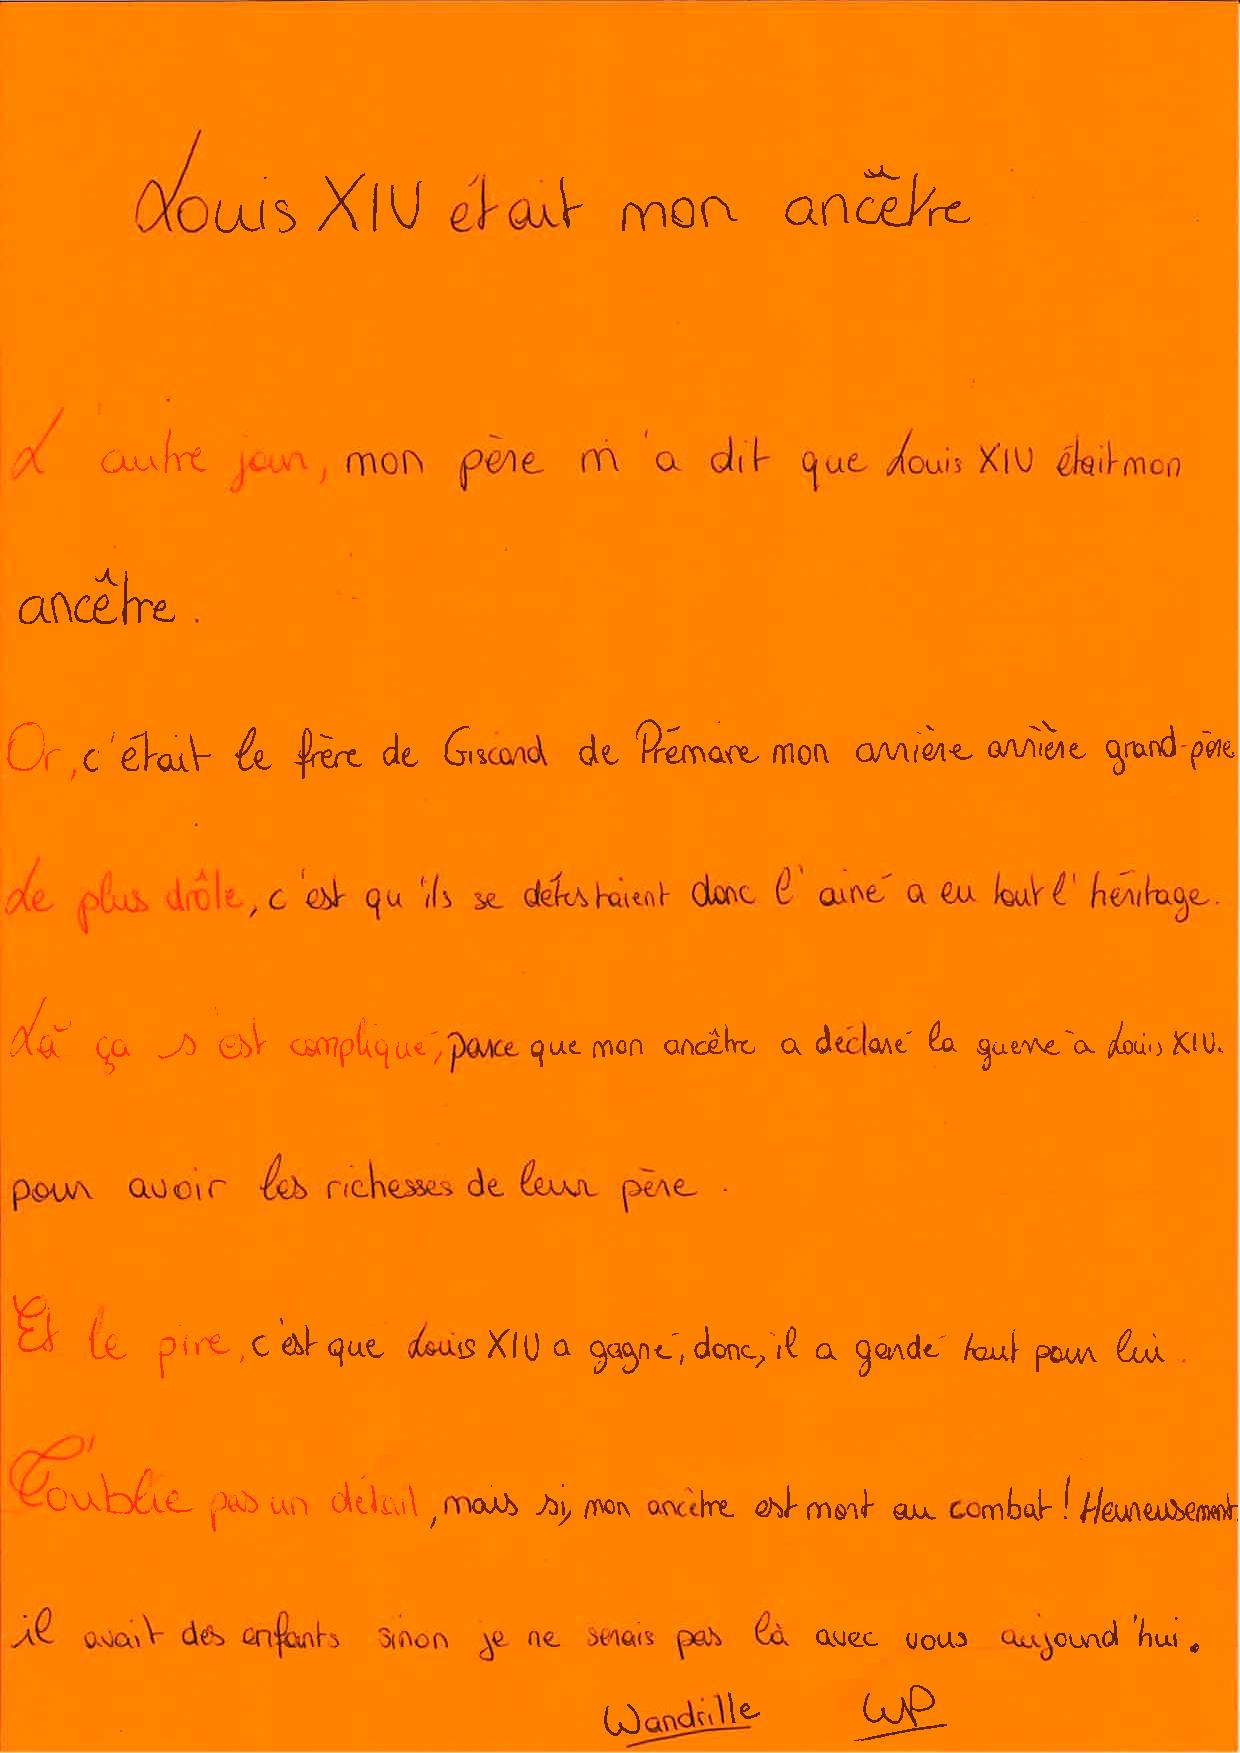 Louis XIV était mon ancêtre
L'autre jour, mon père m'a dit que Louis XIV était mon
ancêtre.
Or, c'était le frère de Giscard de Prémare mon arrière arrière grand-père
Le plus drôle, c'est qu'ils se détestaient donc l'ainé a eu tout l'héritage.
Là ça s'est compliqué, parce que mon ancêtre a déclaré la guerre à Louis XIV.
pour avoir les richesses de leur père.
Et le pire, c'est que Louis XIV a gagné, donc, il a gardé tout pour lui.
J'oublie pas un détail, mais si, mon ancètre est mort au combat! Heureusement
il avait des enfants sinon je ne serais pas là avec vous aujourd'hui.
Wandrille WP